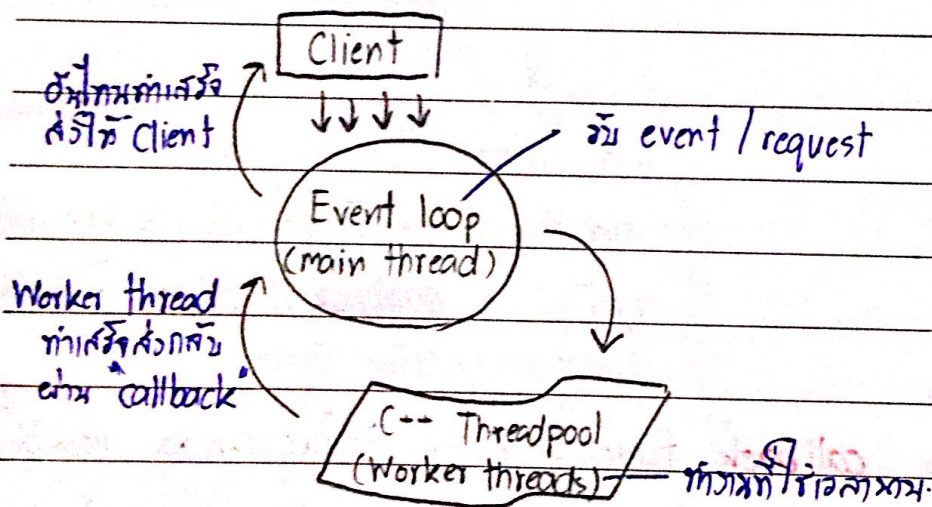 Client
อันไหนทำเสร็จ
ส่งให้ Client
รับ event / request
Event loop
(main thread)
Worker thread
ทำเสร็จส่งกลับ
ผ่าน "callback"
C++ Threadpool
(Worker threads)
ทำงานที่ใช้เวลานาน